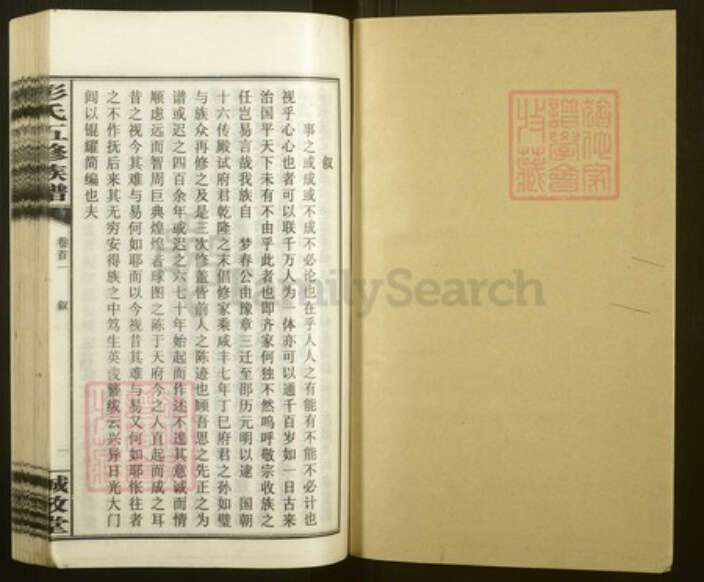 叙
事之或成或不成不必论也在乎人人之有能有不能不必计也
视乎心心也者可以联千万人为一体亦可以通千百岁如一日古来
治国平天下未有不由乎此者也即齐家何独不然呜呼敬宗收族之
任岂易言哉我族自 梦春公由豫章三迁至邵历元明以逮 国朝
十六传殿试府君乾隆之末倡修家乘咸丰七年丁巳府君之孙如璧
与族众再修之及是三次修盖皆前人之陈迹也顾吾思之先正之为
谱或迟之四百余年或迟之六七十年始起而作述不遑其意诚而情
顺虑远而智周巨典煌煌若球图之陈于天府今之人直起而成之耳
昔之视今其难与易何如耶而以今视昔其难与易又何如耶怅往者
之不作抚后来其无穷安得族之中笃生英俊簪绂云兴异日光大门
闾以锟耀简编也夫
彭氏五修族谱
卷首一
叙
一
诚敬堂
谱学会
收藏
FamilySearch